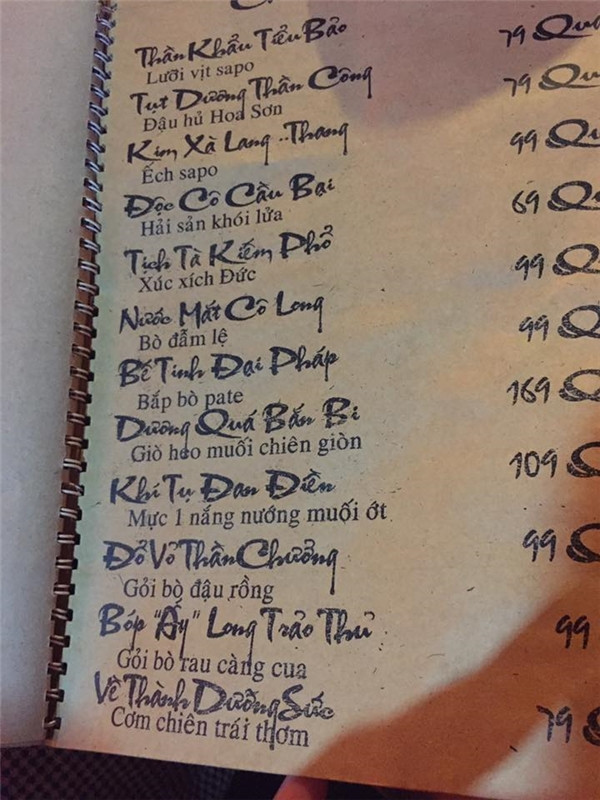 Thần Khẩu Tiểu Bảo 79
Lưỡi vịt sapo
Tụt Dưỡng Thần Công 79
Đậu hủ Hoa Sơn
Kim Xà Lang ..Thang 99
Ếch sapo
Độc Cô Cầu Bại 69
Hải sản khói lửa
Tịch Tà Kiếm Phổ 99
Xúc xích Đức
Nước Mắt Cô Long 99
Bò đẫm lệ
Bế Tinh Đại Pháp 169
Bắp bò pate
Dưỡng Quá Bắn Bi 109
Giò heo muối chiên giòn
Khí Tụ Đan Điền 99
Mực 1 nắng nướng muối ớt
Đổ Vỏ Thần Chưởng 99
Gỏi bò đậu rồng
Bóp "Ấy" Long Trảo Thủ 99
Gỏi bò rau càng cua
Về Thành Dưỡng Sức 79
Cơm chiên trái thơm